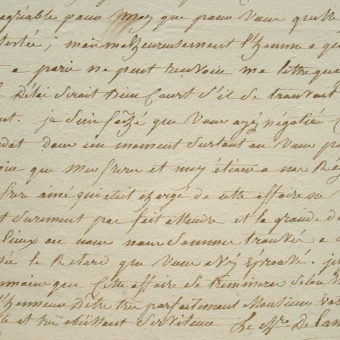 agréable pour moy que pour vous qu'elle
portée; mais malheureusement l'homme a qui
a paris ne peut renvoier ma lettre qua
Le Delai serait Bien Court s'il se trouvait
. je suis faché que vous ayés négotié
dat dans un moment surtout ou vous
que Mon frere et moy étions a
frere ainé qui etait chargé de cette affaire ne
surement pas fait attendre et la grande
Lieux ou nous nous sommes trouvés a
Le Retard que vous avés éprouvé. je
que Cette affaire se terminera selon
l'honneur d'être très parfaitement Monsieur
et très obéissant serviteur Le